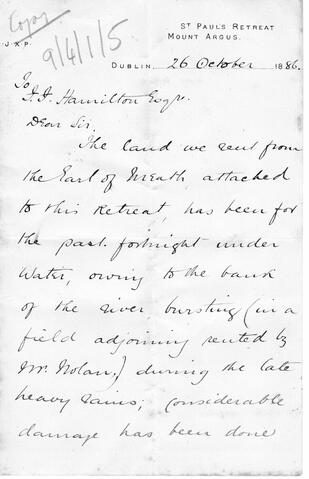 Copy
9/4/1/5
J.X.P.
St Paul's Retreat
Mount Argus.
Dublin, 26 October 1886.
To
J. J. Hamilton Esqre.
Dear Sir.
The land we rent from
the Earl of Meath attached
to this Retreat, has been for
the past fortnight under
Water, owing to the bank
of the river bursting (in a
field adjoining rented by
Mr. Nolan,) during the late
heavy rains; considerable
damage has been done